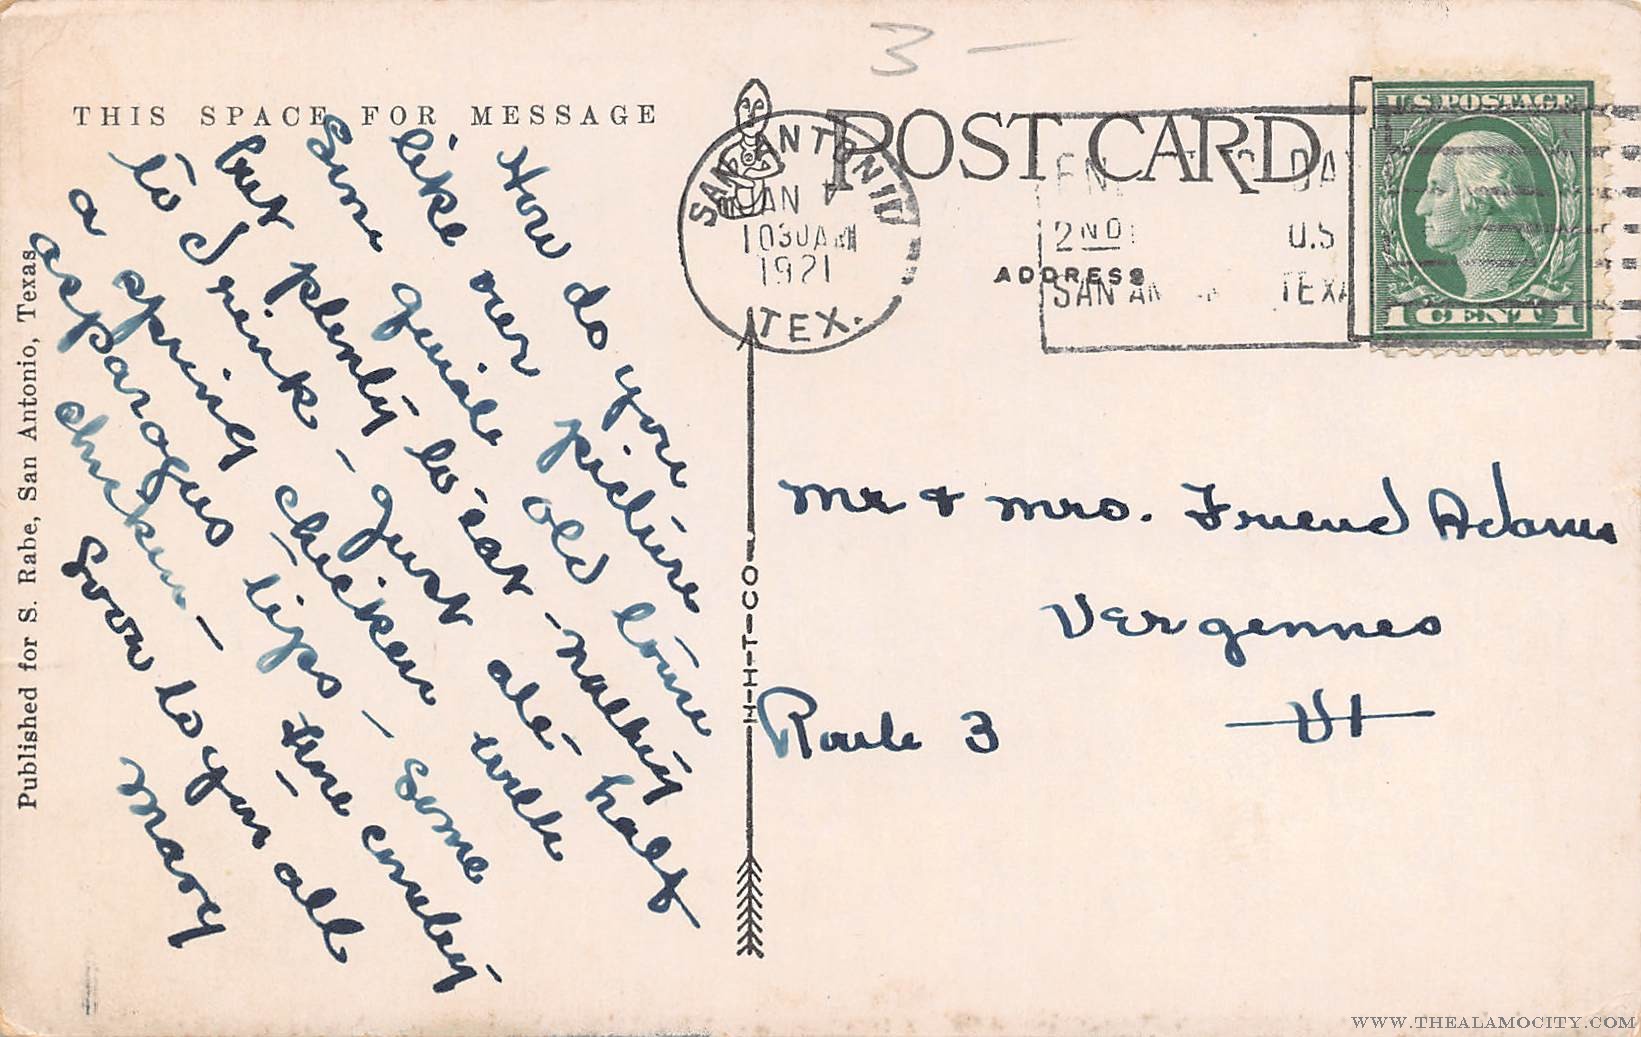 THIS SPACE FOR MESSAGE
How do you
like our picture
Some quiale old town
but plenty to eat - nothing
to drink - Just ate half
a spring chicken with
asparagus tips - some
chicken -
Love to you all
Mary
Published for S. Rabe, San Antonio, Texas
3 -
POST CARD
SAN ANTONIO
JAN
1030AM
1921
TEX.
2ND
U.S
SAN AN
TEXA
ADDRESS
U.S. POSTAGE
1 CENT 1
M-H-T-CO-
Mr + Mrs. Friend Adams
Vergennes
Route 3
Vt
WWW.THEALAMOCITY.COM